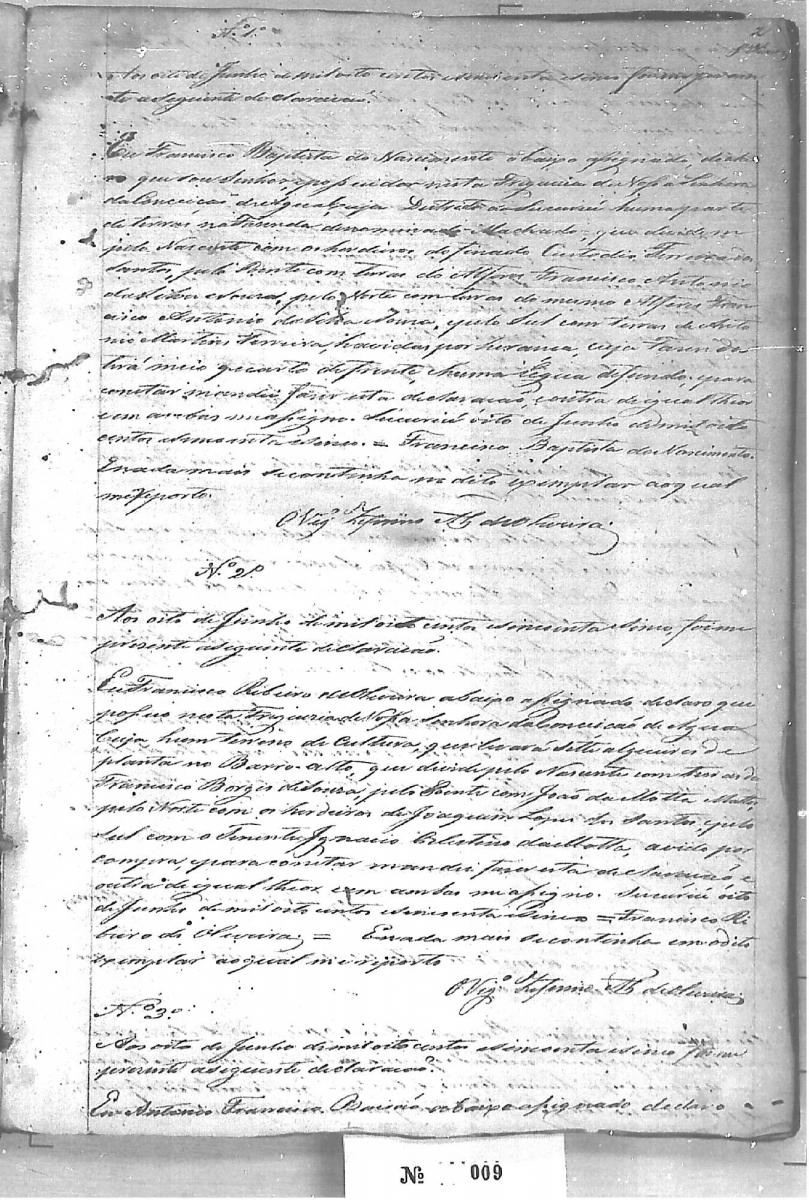 N.º 1º
2
Aos oito de Junho de mil oito centos e sincoenta e sinco foi me presen
te a seguinte declaracaõ.
Eu Francisco Baptista do Nascimento abaixo assignado decla
ro que sou Senhor, e possuidor nesta Freguezia de Nossa Senhora
da Conceicaõ de Agua Suja Districto do Sucuriú huma parte
de terras na Fazenda denominada Machado, que divide m
pelo Nascente com os herdeiros do finado Custodio Ferreira dos
Santos, pelo Poente com terras do Alferes Francisco Antonio
da Silva e Souza, pelo Norte com terras do mesmo Alferes Fran
cisco Antonio da Silva e Souza, e pelo Sul com terras de Anto
nio Martins Ferreira, havidas por heranca, cuja Fazenda
terá meio quarto de frente, e huma legua de fundo, e para
constar mandei fazer esta declaracaõ, e outra de igual theor
em ambas me assigno. Sucuriú oito de Junho de mil oito
centos e sincoenta e sinco. = Francisco Baptista do Nascimento.
E nada mais se continha no dito exemplar ao qual
me reporto.
O Vigº Zeferino Alz de Oliveira
N.º 2º
Aos oito de Junho de mil oito centos e sincoenta e sinco, foi me
presente a seguinte declaracaõ.
Eu Francisco Ribeiro de Oliveira abaixo assignado declaro que
possuo nesta Freguezia de Nossa Senhora da Conceicaõ de Agua
Suja hum terreno de Cultura, que levará sete alqueires de
planta no Barro-alto, que divide pelo Nascente com terras de
Francisco Borges de Souza, pelo Poente com Joaõ da Motta Mattos,
pelo Norte com os herdeiros de Joaquim Lopes dos Santos, e pelo
Sul com o Tenente Ignacio Celestino da Motta, avido por
compra, e para constar mandei fazer esta declaracaõ e
outra de igual theor em ambas me assigno. Sucuriú oito
de Junho de mil oito centos e sincoenta e sinco = Francisco Ri
beiro de Oliveira = E nada mais se continha em o dito
exemplar ao qual me reporto
O Vigº Zeferino Alz de Oliveira
N.º 3º
Aos oito de Junho de mil oito centos e sincoenta e sinco foi me
prezente a seguinte declaracaõ.
Eu Antonio Francisco abaixo assignado declaro
Nº 009